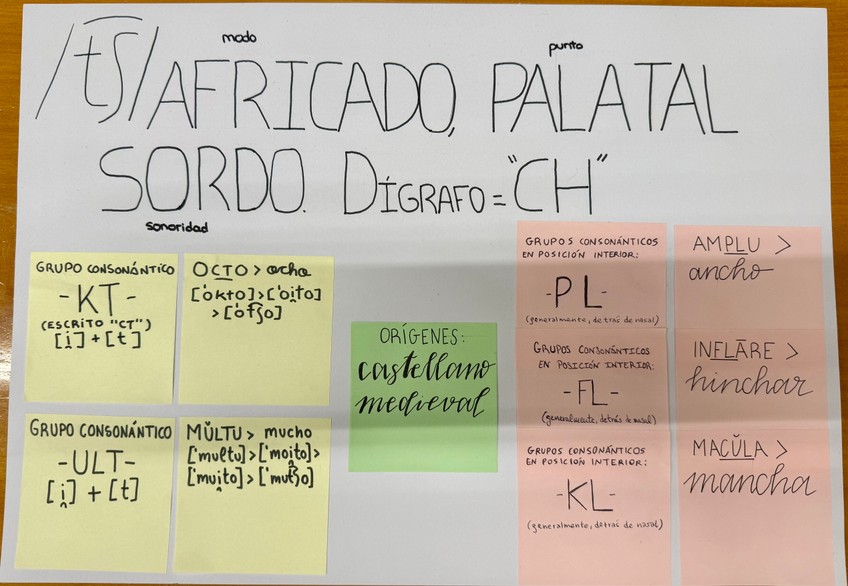 modo
punto
/t͡ʃ/ AFRICADO, PALATAL
SORDO. DÍGRAFO = "CH"
sonoridad
GRUPO CONSONÁNTICO
-KT-
(ESCRITO "CT")
[i̯] + [t]
OCTO > ocho
['okto] > ['oi̯to]
> ['ot͡ʃo]
GRUPO CONSONÁNTICO
-ULT-
[i̯] + [t]
MŬLTU > mucho
['multu] > ['moi̯to] >
['mui̯to] > ['mut͡ʃo]
ORÍGENES:
castellano
medieval
GRUPOS CONSONÁNTICOS
EN POSICIÓN INTERIOR:
-PL-
(generalmente, detrás de nasal)
AMPLU >
ancho
GRUPOS CONSONÁNTICOS
EN POSICIÓN INTERIOR:
-FL-
(generalmente, detrás de nasal)
INFLĀRE >
hinchar
GRUPOS CONSONÁNTICOS
EN POSICIÓN INTERIOR:
-KL-
(generalmente, detrás de nasal)
MACŬLA >
mancha